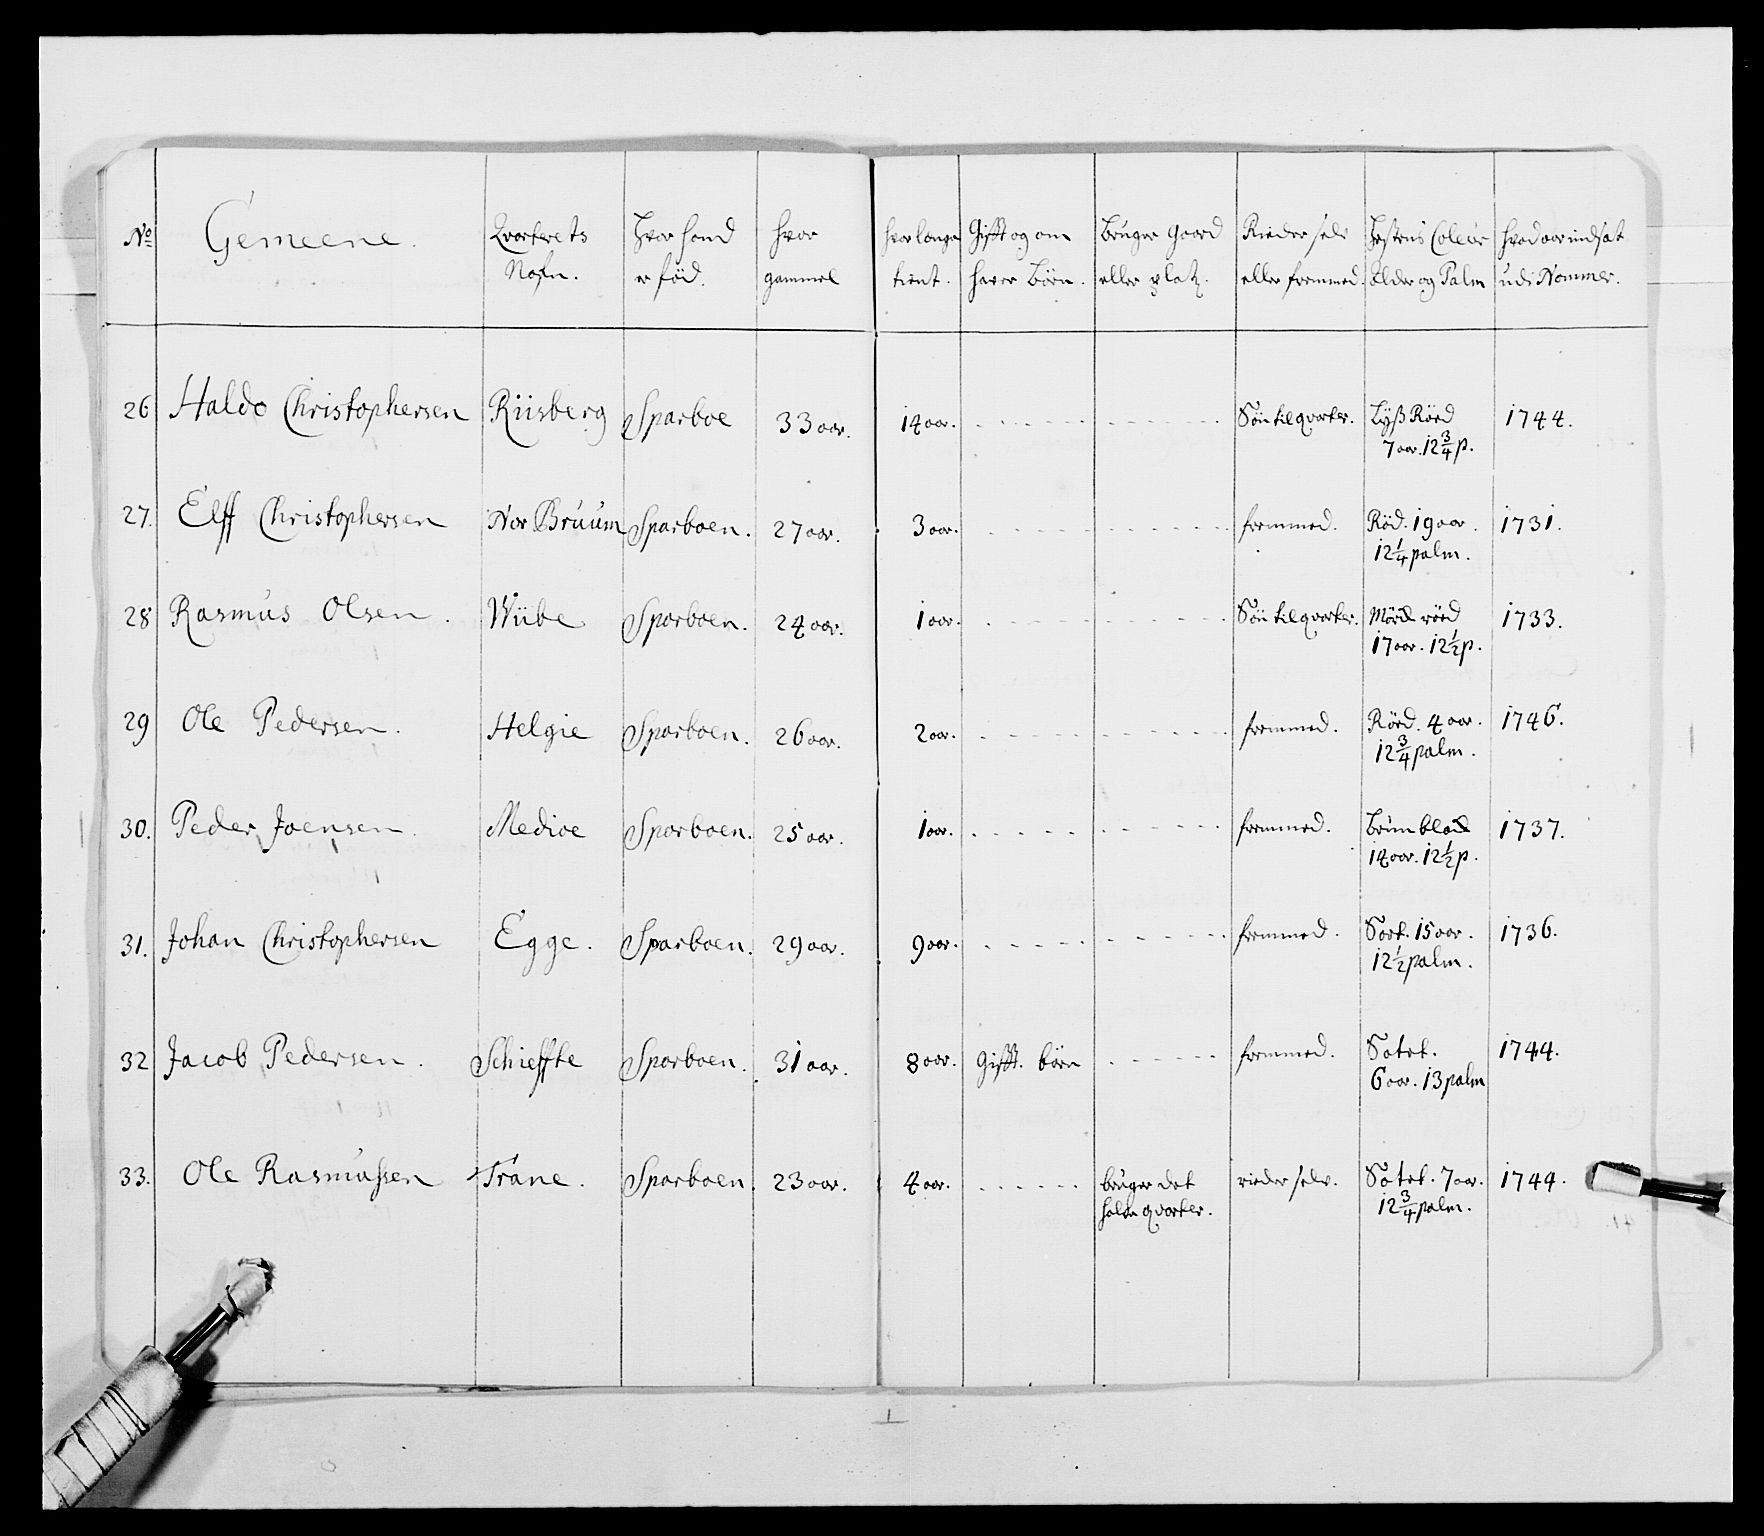 No Gemeene. Qvarterets Hvor hand hvor hvor lenge Gifft og om Bruger Gaard Rieder self Hestens Coleur hvad aar indsat
Nafn. er fød. gammel tient. haver Börn. eller platz. eller fremmed. Alder og Palm udi Nommer.
26 Haldo Christophersen Riisberg Sparboe 33 aar. 14 aar. Söntilqvarter. Lyß Röed 1744.
7 aar. 12 3/4 p.
27. Elff Christophersen Nor Bruum Sparboen. 27 aar. 3 aar. fremmed. Röd. 19 aar. 1731.
12 1/4 palm.
28 Rasmus Olsen. Wiibe Sparboen. 24 aar. 1 aar. Söntilqvarter. Mörck röed 1733.
17 aar. 12 1/2 p.
29 Ole Pedersen. Helgie Sparboen. 26 aar. 2 aar. fremmed. Röed. 4 aar. 1746.
12 3/4 palm.
30. Peder Joensen. Medioe Sparboen. 25 aar. 1 aar. fremmed. Brun 1737.
14 aar. 12 1/2 p.
31. Johan Christophersen Egge. Sparboen. 29 aar. 9 aar. fremmed. Sort. 15 aar. 1736.
12 1/2 palm.
32 Jacob Pedersen. Schieffte Sparboen. 31 aar. 8 aar. Gifft. börn fremmed. Sotet. 1744.
6 aar. 13 palm
33. Ole Rasmussen Trane. Sparboen. 23 aar. 4 aar. bruger det rieder selv. Sotet. 7 aar. 1744.
halve qvarter. 12 3/4 palm.